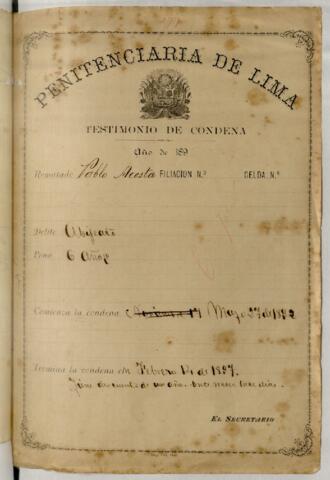 PENITENCIARIA DE LIMA
TESTIMONIO DE CONDENA
Año de 189
Rematado Pablo Acosta FILIACION N.º CELDA N.º
Delito Abijeato
Pena 6 Años
Comienza la condena Mayo 27 de 1892
Termina la condena el Febrero 14 de 1897
de un año
EL SECRETARIO